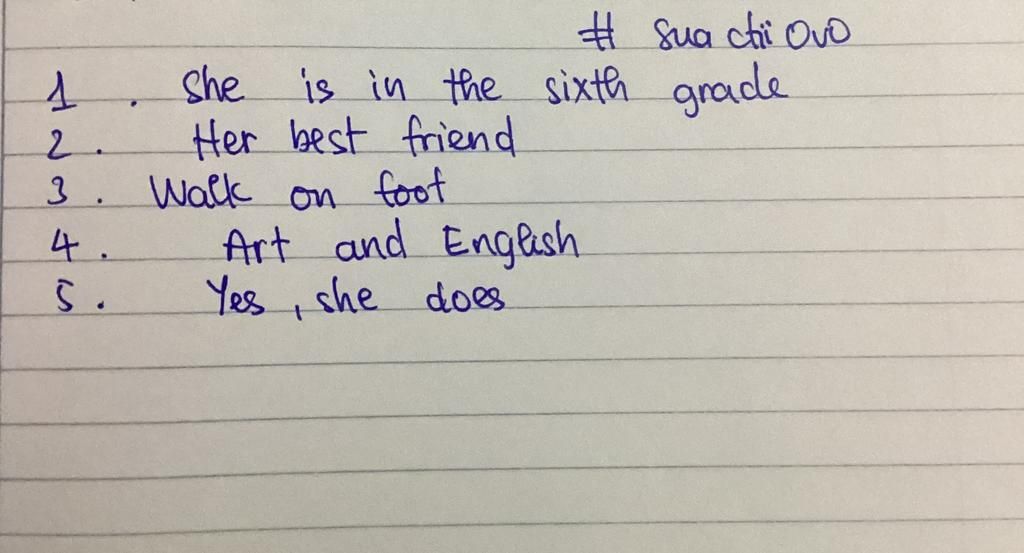 # sua chii OvO
1. She is in the sixth grade
2. Her best friend
3. Walk on foot
4. Art and English
5. Yes, she does